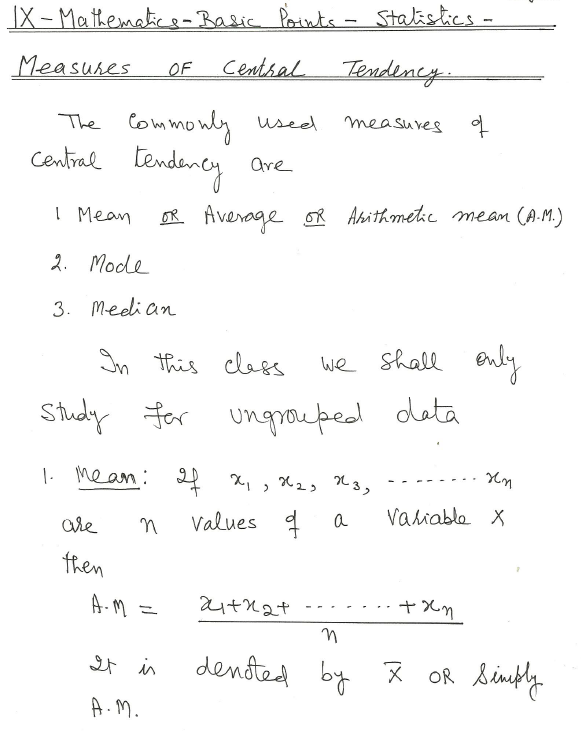 IX - Mathematics - Basic Points - Statistics -
Measures OF Central Tendency.
The Commonly used measures of
Central tendency are
1 Mean OR Average OR Arithmetic mean (A.M.)
2. Mode
3. Median
In this class we shall only
Study for ungrouped data
1. Mean: If x₁, x₂, x₃, -------- xₙ
are n values of a Variable X
then
A.M = x₁+x₂+ ------- +xₙ
n
It is denoted by X̅ OR Simply
A.M.